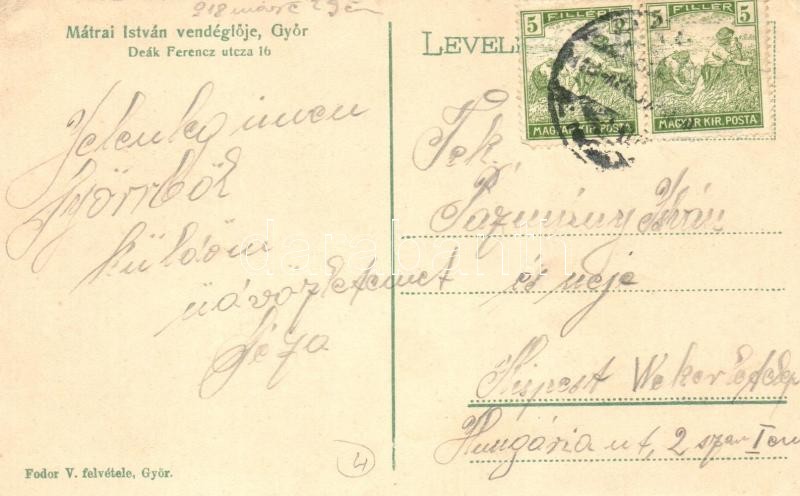 918 márc 29én
Mátrai István vendéglője, Győr
Deák Ferencz utcza 16
LEVELE
5 FILLÉR 5
MAGYAR KIR. POSTA
5 FILLÉR 5
MAGYAR KIR. POSTA
Jelenleg innen
Győrről
küldöm
üdvözletemet
Géza
Tek.
Pázmány István
és neje
Kispest Wekerletelep
Hungária ut, 2 szám I em
4
Fodor V. felvétele, Győr.